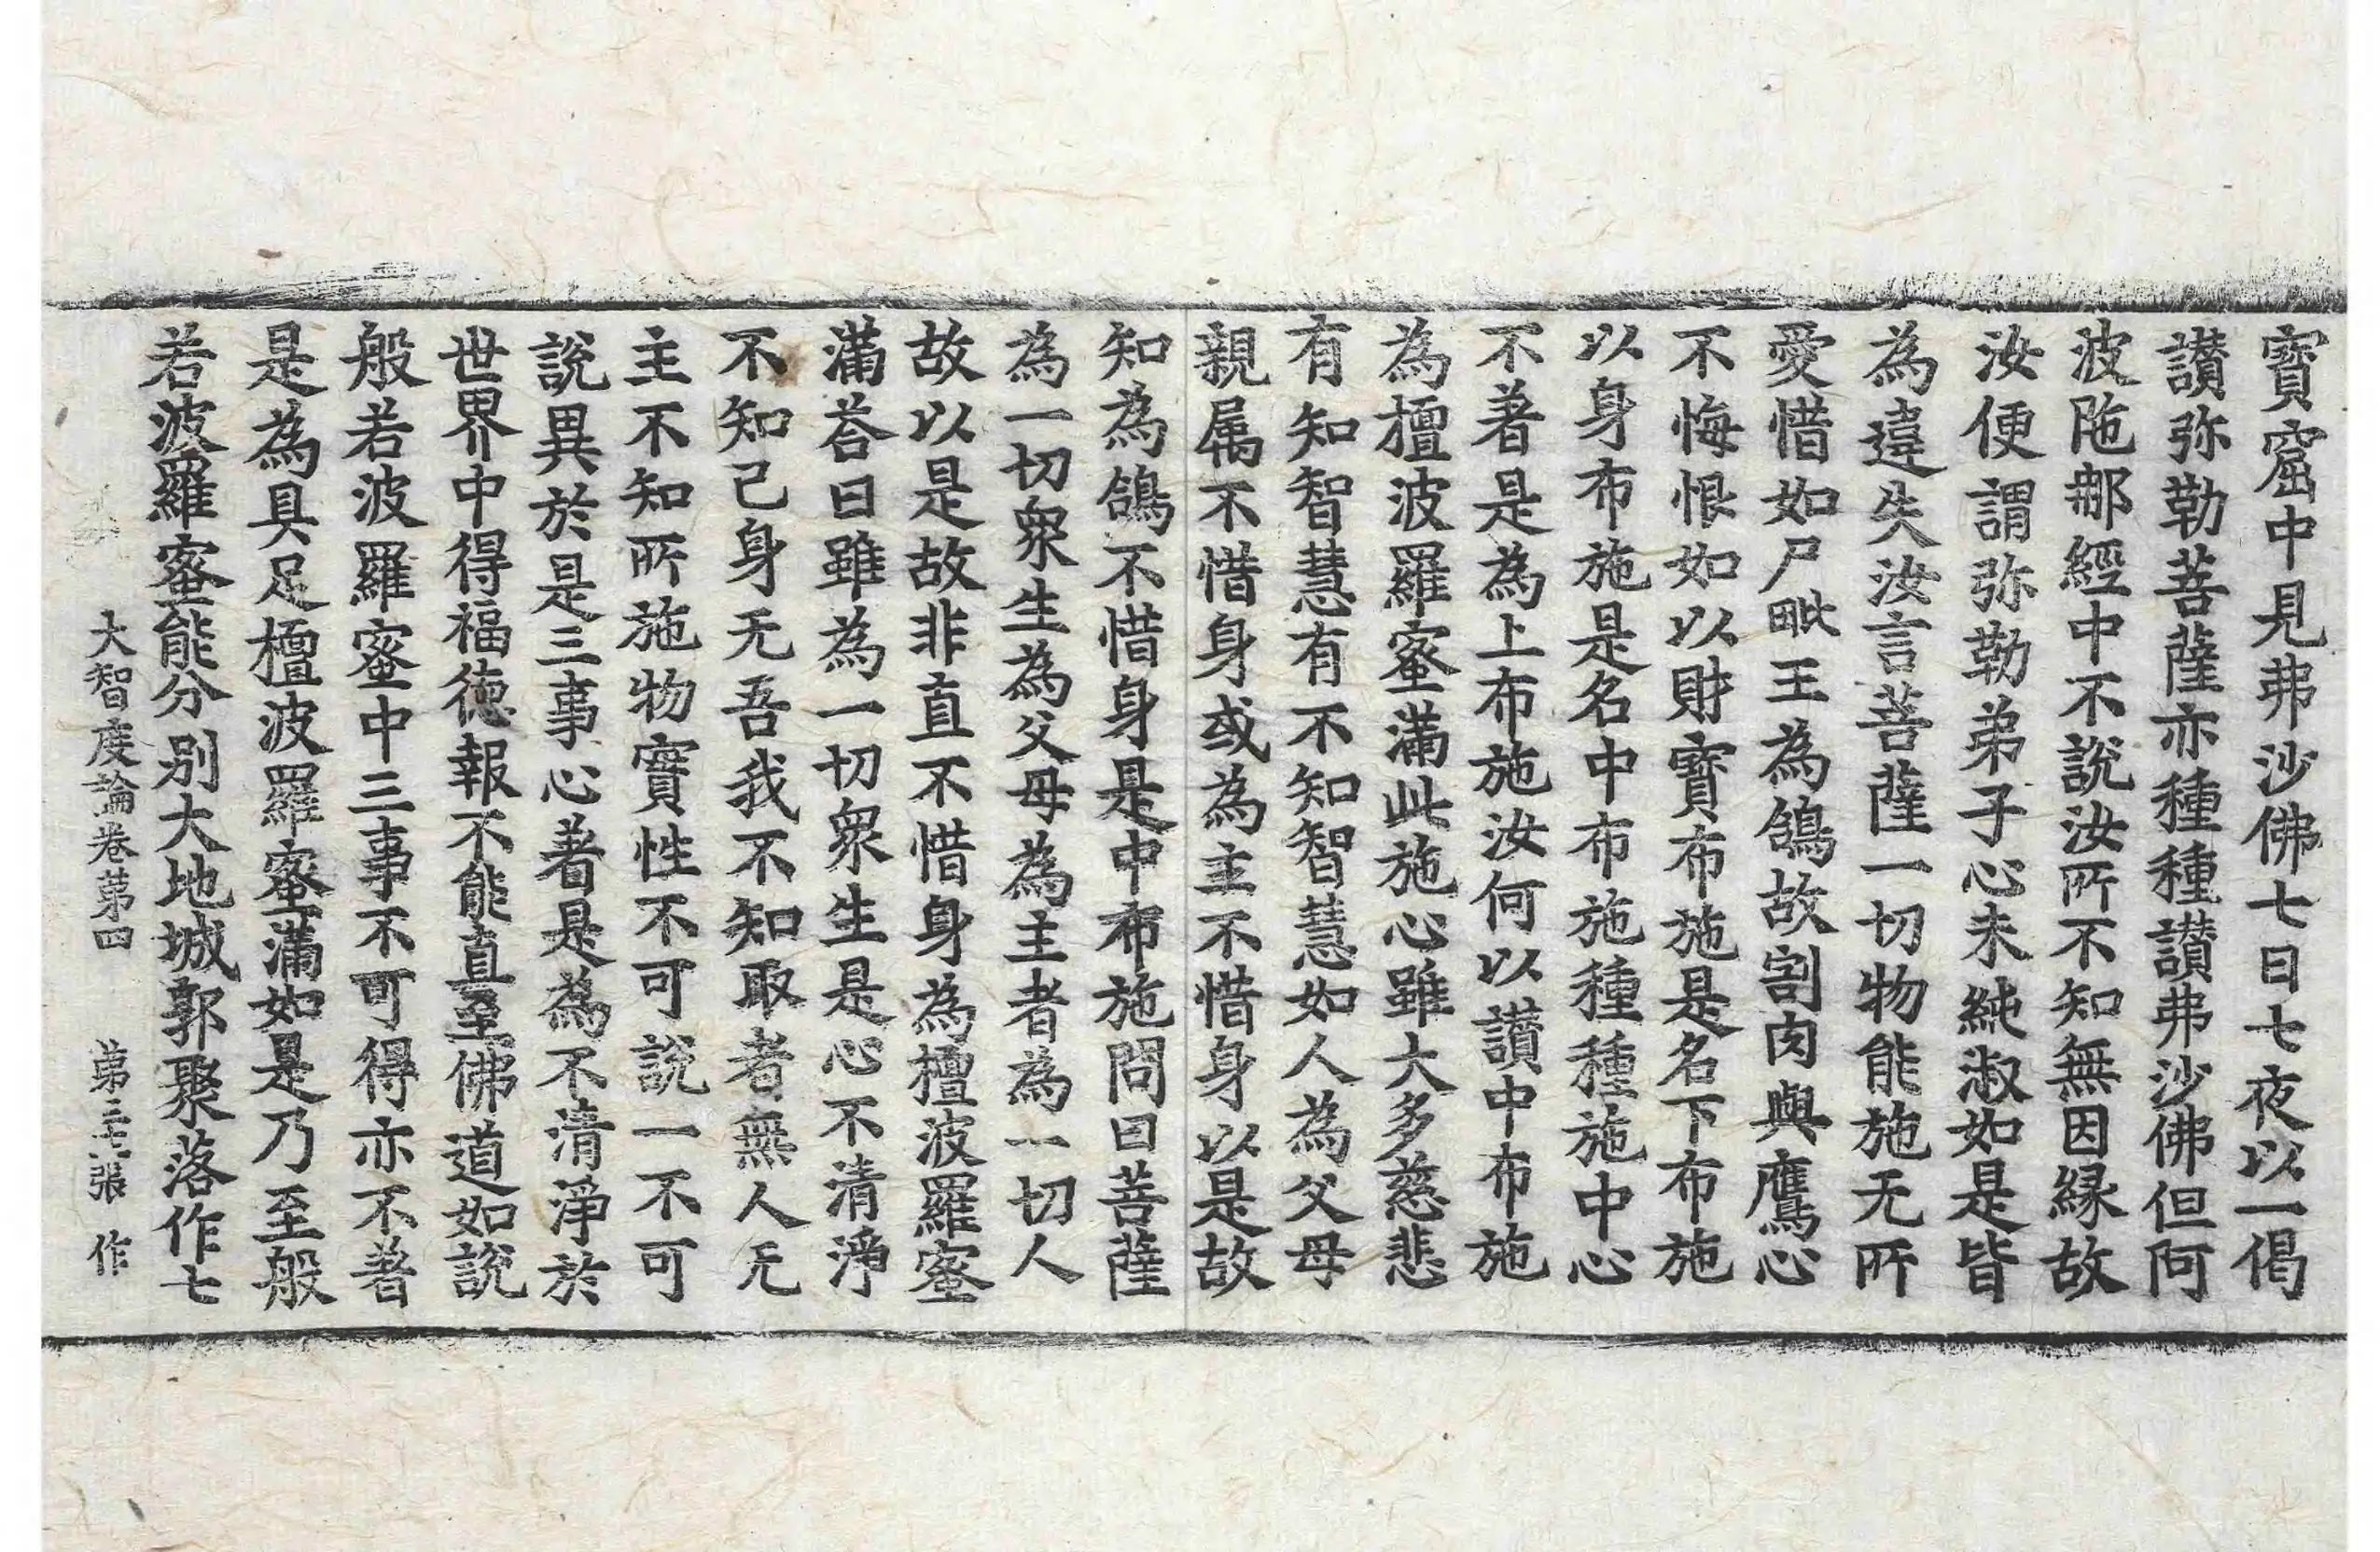 寶窟中見弗沙佛七日七夜以一偈
讃弥勒菩薩亦種種讃弗沙佛但阿
波陁𨙻經中不說汝所不知無因緣故
汝便謂弥勒弟子心未純淑如是皆
為違失汝言菩薩一切物能施无所
愛惜如尸毗王為鴿故割肉與鷹心
不悔恨如以財寶布施是名下布施
以身布施是名中布施種種施中心
不著是為上布施汝何以讃中布施
為檀波羅蜜滿此施心雖大多慈悲
有知智慧有不知智慧如人為父母
親属不惜身或為主不惜身以是故
知為鴿不惜身是中布施問曰菩薩
為一切衆生為父母為主者為一切人
故以是故非直不惜身為檀波羅蜜
滿荅曰雖為一切衆生是心不清淨
不知己身无吾我不知取者無人无
主不知所施物實性不可說一不可
說異於是三事心著是為不清淨於
世界中得福德報不能直至佛道如說
般若波羅蜜中三事不可得亦不著
是為具足檀波羅蜜滿如是乃至般
若波羅蜜能分別大地城郭聚落作七
大智度論卷苐四 苐三十七張 作